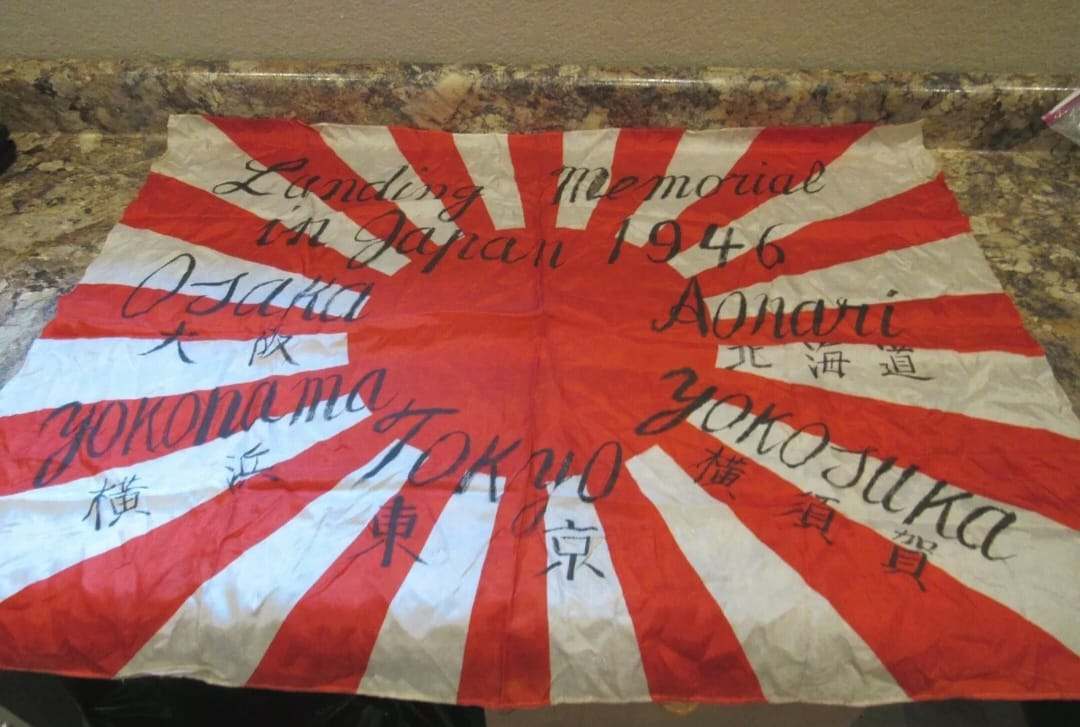 Landing Memorial
in Japan 1946
Osaka
大阪
Aonari
北海道
yokohama
横浜
Tokyo
東京
yokosuka
横須賀